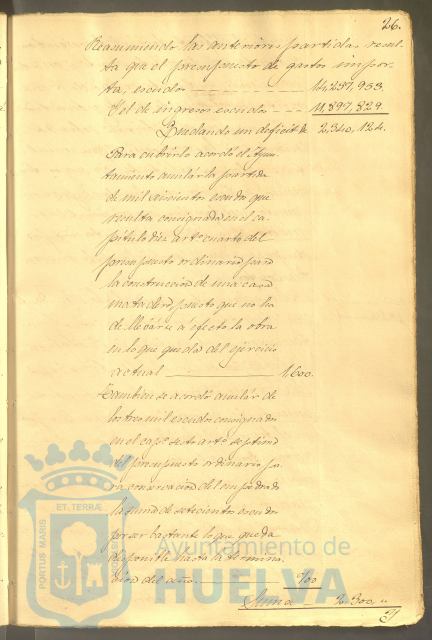 26.
Resumiendo las anteriores partidas resul-
ta que el presupuesto de gastos impor-
ta, escudos 14,237,953,
Y el de ingresos escudos 11,897,829
Quedando un deficit de 2,340,124.
Para cubrirlo acordó el Ayun-
tamiento anular la partida
de mil seiscientos escudos que
resulta consignada en el ca-
pítulo diez artº cuarto del
presupuesto ordinario para
la construccion de una casa
matadero puesto que no ha
de llevarse a efecto la obra
en lo que queda del ejercicio
actual 1,600.
Tambien se acordó anular de
los tres mil escudos consignados
en el capº sesto artº septimo
del presupuesto ordinario pa-
ra conservacion del empedrado
la suma de setecientos escudos
por ser bastante lo que queda
disponible hasta la termina-
cion del año. 700
Suma 2,300,
PORTUS MARIS ET. TERRÆ
Ayuntamiento de
HUELVA